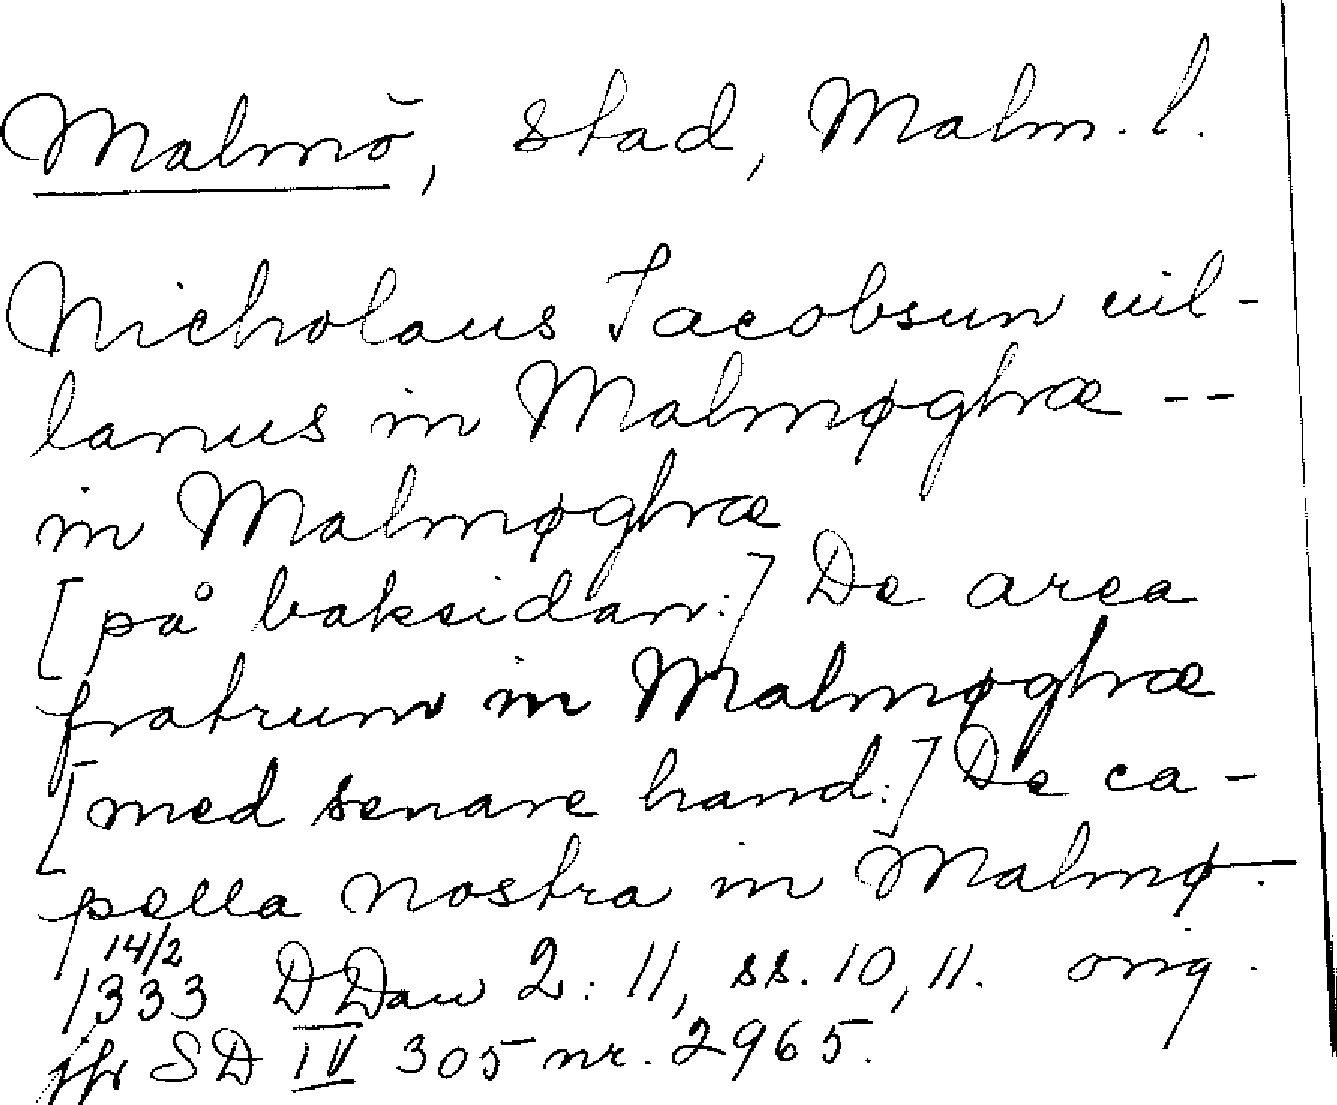 Malmö, stad, Malm. l.
Nicholaus Jacobsun uil-
lanus in Malmøghæ --
in Malmøghæ
[på baksidan:] De area
fratrum in Malmøghæ
[med senare hand:] De ca-
pella nostra in Malmø.
14/2
1333 DDan 2: 11, ss. 10, 11. orig.
jfr SD IV 305 nr. 2965.